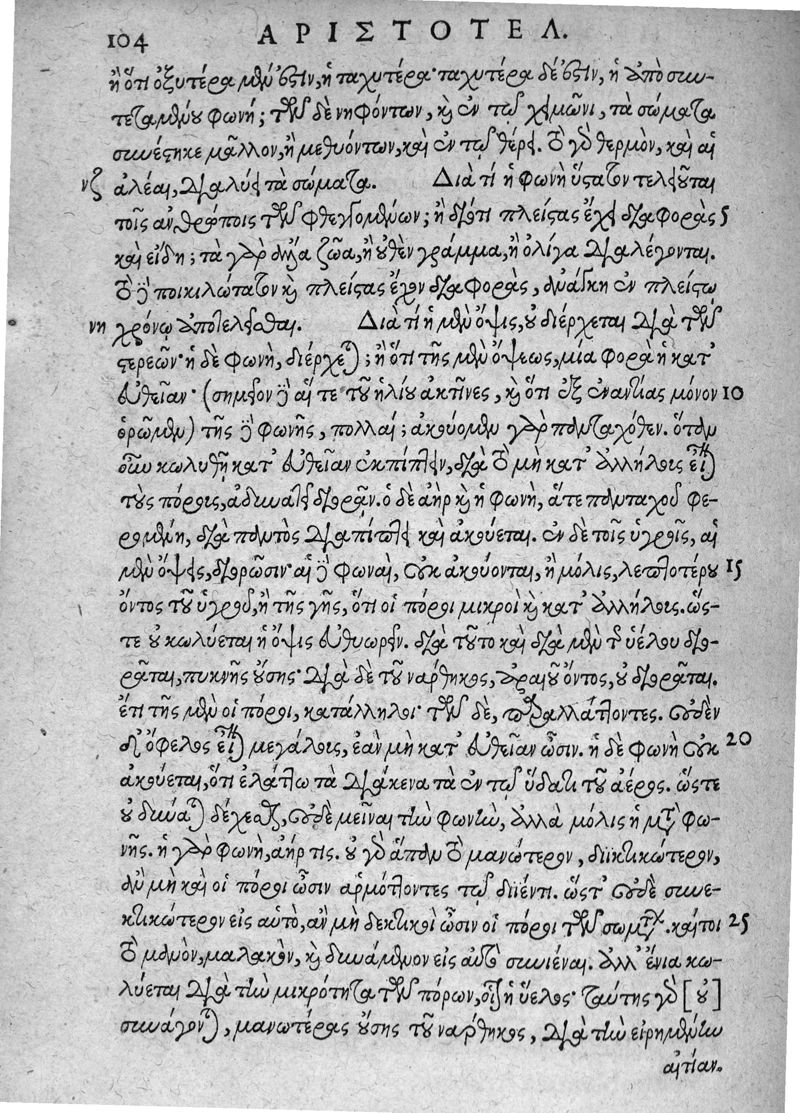 104 ΑΡΙΣΤΟΤΕΛ.
ἢ ὅτι ὀξυτέρα μὲν ἐστὶν, ἡ ταχυτέρα· ταχυτέρα δέ ἐστιν, ἡ ἀπὸ συν-
τεταμένου φωνή; τῶν δὲ νηφόντων, καὶ ἐν τῷ χειμῶνι, τὰ σώματα
συνέστηκε μᾶλλον, ἢ μεθυόντων, καὶ ἐν τῷ θέρει. τὸ γὰρ θερμὸν, καὶ αἱ
νζ ἀλέαι, διαλύει τὰ σώματα. Διὰ τί ἡ φωνὴ ὕστατον τελειοῦται
τοῖς ἀνθρώποις τῶν φθεγγομένων; ἢ διότι πλείστας ἔχει διαφορὰς 5
καὶ εἴδη; τὰ γὰρ ἄλλα ζῶα, ἢ οὐθὲν γράμμα, ἢ ὀλίγα διαλέγονται.
τὸ δὲ ποικιλώτατον καὶ πλείστας ἔχον διαφορὰς, ἀνάγκη ἐν πλείστῳ
νη χρόνῳ ἀποτελεῖσθαι. Διὰ τί ἡ μὲν ὄψις, οὐ διέρχεται διὰ τῶν
στερεῶν· ἡ δὲ φωνὴ, διέρχεται; ἢ ὅτι τῆς μὲν ὄψεως, μία φορὰ ἡ κατ'
εὐθεῖαν· (σημεῖον δὲ αἵ τε τοῦ ἡλίου ἀκτῖνες, καὶ ὅτι ἐξ ἐναντίας μόνον 10
ὁρῶμεν) τῆς δὲ φωνῆς, πολλαί; ἀκούομεν γὰρ πανταχόθεν. ὅταν
οὖν κωλυθῇ κατ' εὐθεῖαν ἐκπίπτειν, διὰ τὸ μὴ κατ' ἀλλήλοις εἶναι
τοὺς πόροις, ἀδυνατεῖ διορᾷν. ὁ δὲ ἀὴρ καὶ ἡ φωνὴ, ἅτε πανταχοῦ φε-
ρομένη, διὰ παντὸς διαπίπτει καὶ ἀκούεται. ἐν δὲ τοῖς ὑγροῖς, αἱ
μὲν ὄψεις, διορῶσιν· αἱ δὲ φωναὶ, οὐκ ἀκούονται, ἢ μόλις, λεπτοτέρου 15
ὄντος τοῦ ὑγροῦ, ἢ τῆς γῆς, ὅτι οἱ πόροι μικροὶ καὶ κατ' ἀλλήλοις. ὥς-
τε οὐ κωλύεται ἡ ὄψις εὐθυωρεῖν. διὰ τοῦτο καὶ διὰ μὲν τῆς ὑέλου διο-
ρᾶται, πυκνῆς οὔσης· διὰ δὲ τοῦ νάρθηκος, ἀραιοῦ ὄντος, οὐ διορᾶται.
ἔτι τῆς μὲν οἱ πόροι, κατάλληλοι· τῶν δὲ, παραλλάττοντες. οὐδὲν
δ' ὄφελος εἶναι μεγάλοις, ἐὰν μὴ κατ' εὐθεῖαν ὦσιν. ἡ δὲ φωνὴ οὐκ 20
ἀκούεται, ὅτι ἐλάττω τὰ διάκενα τὰ ἐν τῷ ὕδατι τοῦ ἀέρος. ὥστε
οὐ δύναται δέχεσθαι, οὐδὲ μεῖναι τὴν φωνὴν, ἀλλὰ μόλις ἡ μετὰ φω-
νῆς. ἡ γὰρ φωνὴ, ἀήρ τις. οὐ γὰρ ἅπαν τὸ μανώτερον, διϊκτικώτερον,
ἂν μὴ καὶ οἱ πόροι ὦσιν ἁρμόττοντες τῷ διϊέντι. ὥστ' οὐδὲ συνε-
κτικώτερον εἰς αὑτὸ, ἂν μὴ δεκτικοὶ ὦσιν οἱ πόροι τῶν σωμάτων. καίτοι 25
τὸ μανὸν, μαλακὸν, καὶ δυνάμενον εἰς αὐτὸ συνιέναι. ἀλλ' ἔνια κω-
λύεται διὰ τὴν μικρότητα τῶν πόρων, οἷον ἡ ὕελος· ταύτης γὰρ [οὐ]
συνάγονται, μανωτέρας οὔσης τοῦ νάρθηκος, διὰ τὴν εἰρημένην
αἰτίαν.